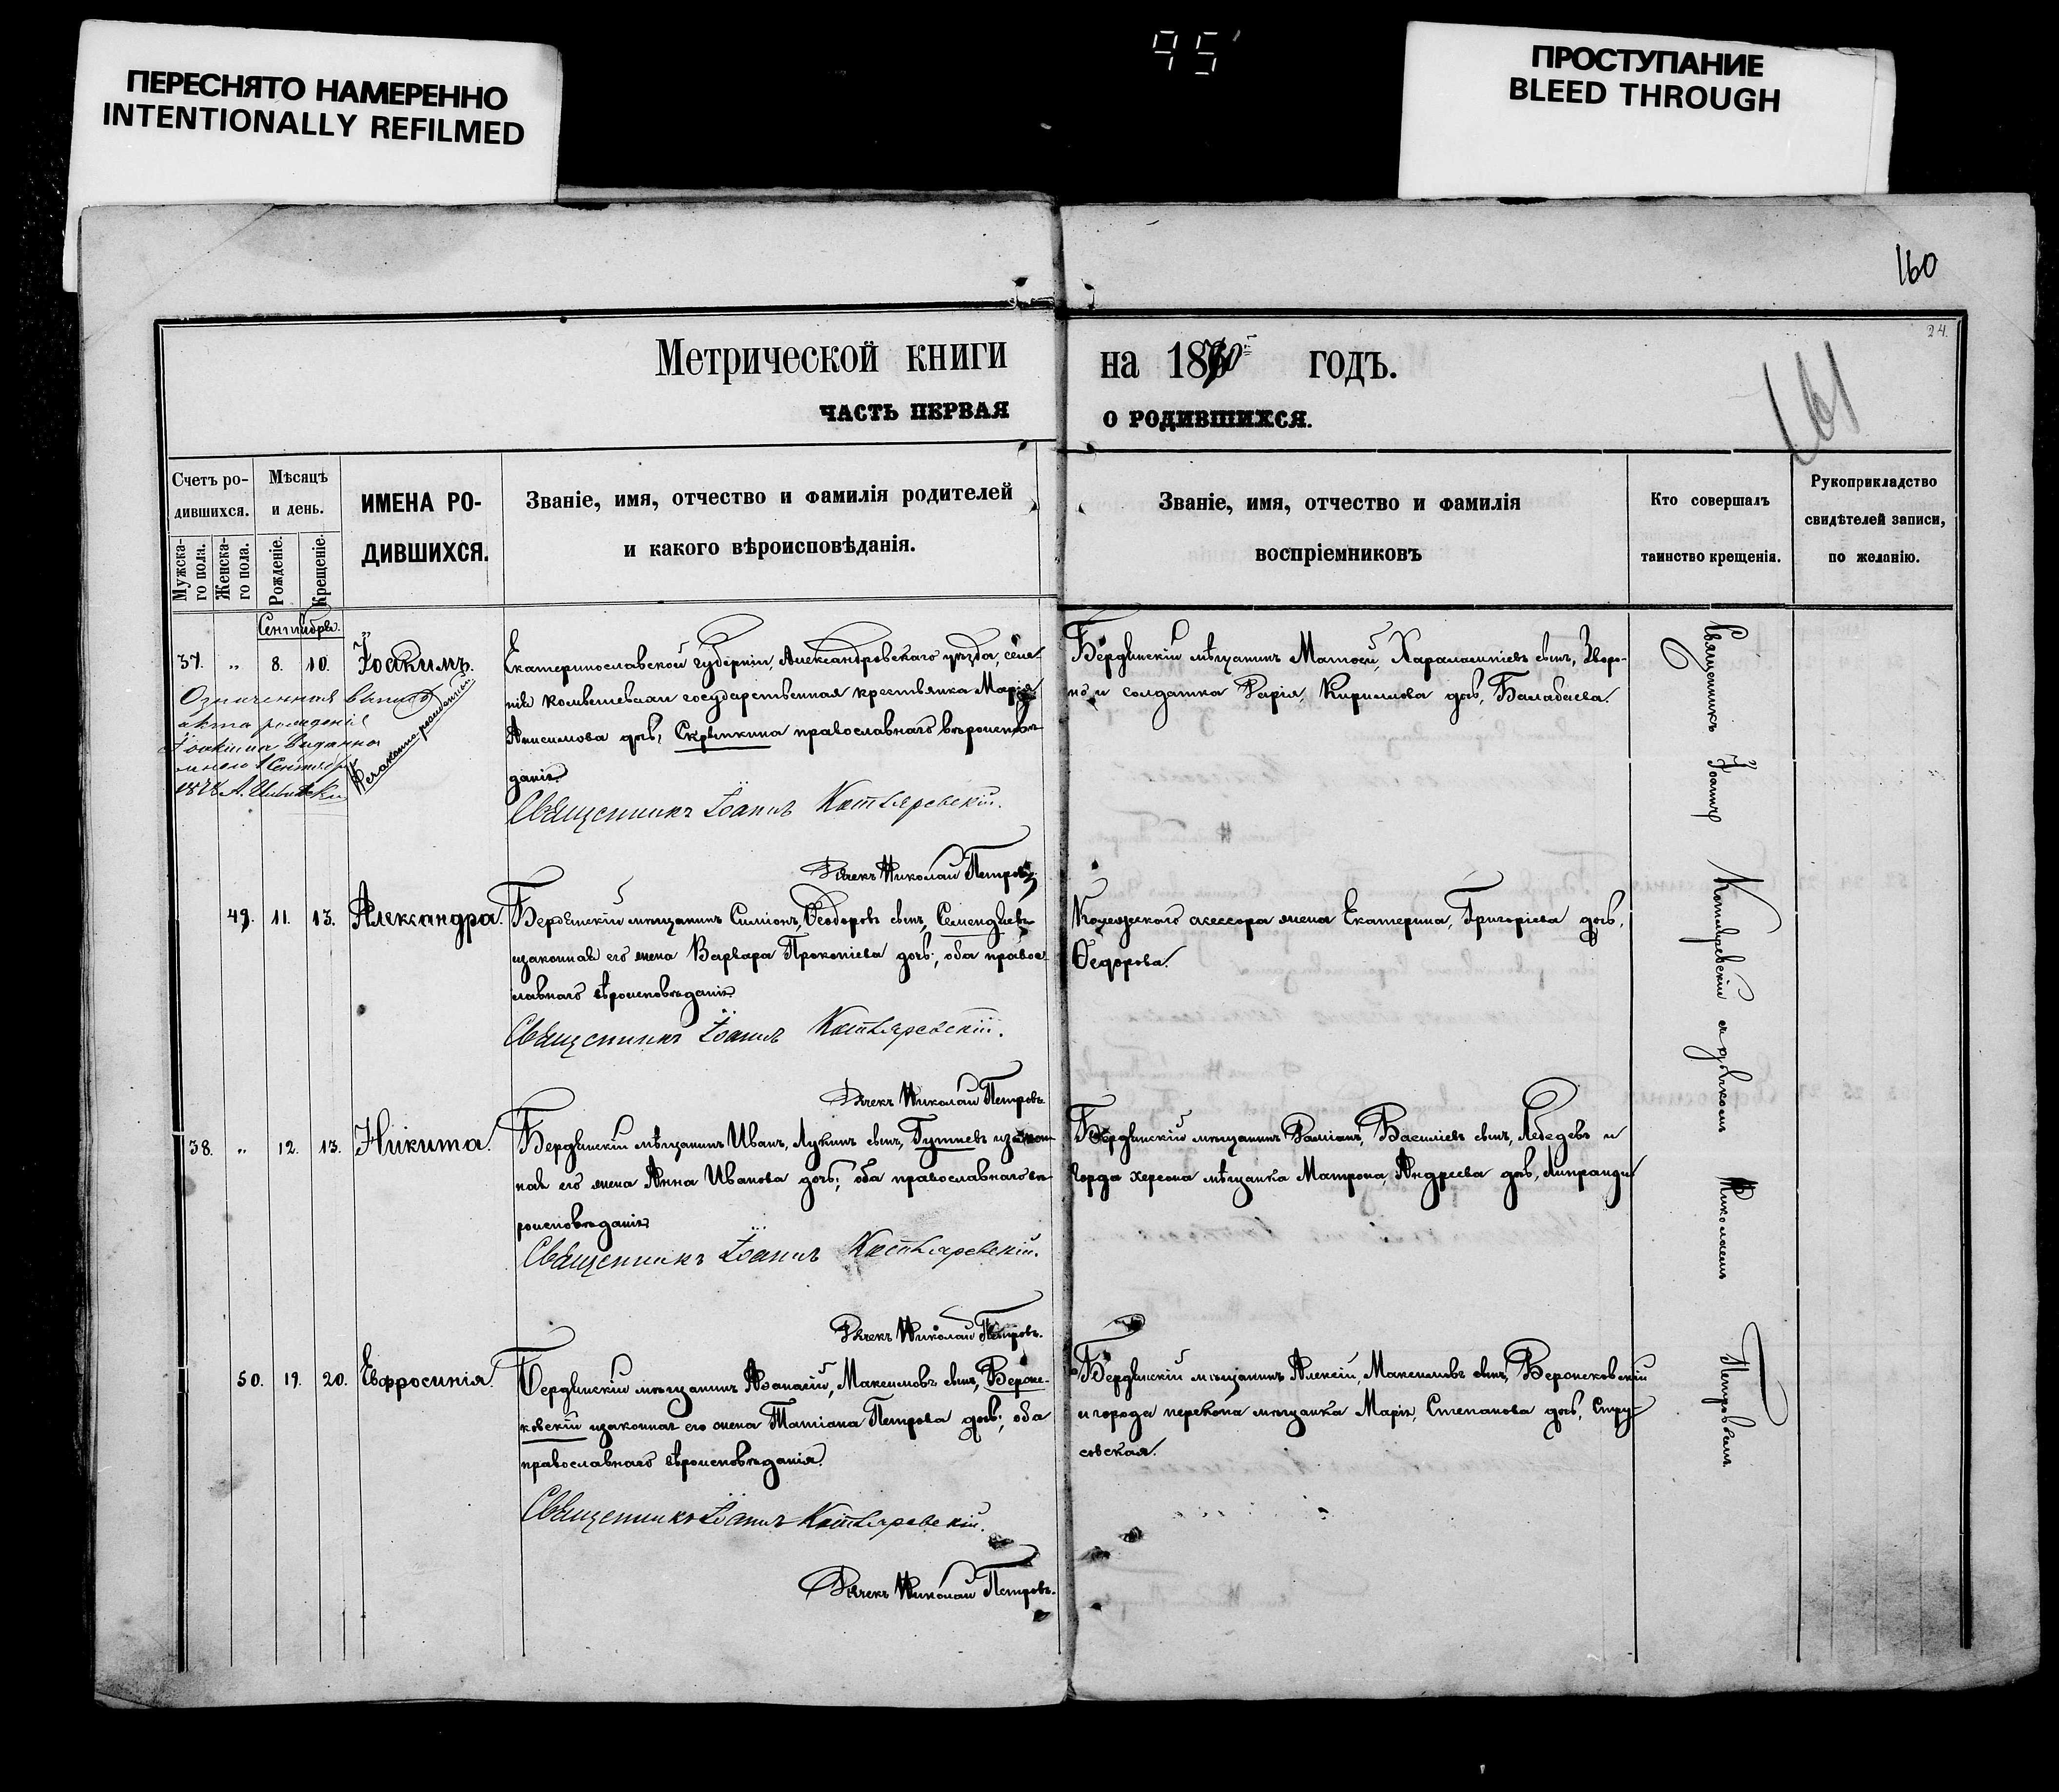 ПЕРЕСНЯТО НАМЕРЕННО
INTENTIONALLY REFILMED
95
ПРОСТУПАНИЕ
BLEED THROUGH
160
24.
161
Метрической книги на 1870 годъ.
ЧАСТЬ ПЕРВАЯ О РОДИВШИХСЯ.
Счетъ родившихся.
Мужска-
го пола.
Женска-
го пола.
Мѣсяцъ
и день.
Рожденіе.
Крещеніе.
ИМЕНА РО-
ДИВШИХСЯ.
Званіе, имя, отчество и фамилія родителей
и какого вѣроисповѣданія.
Званіе, имя, отчество и фамилія
воспріемниковъ
Кто совершалъ
таинство крещенія.
Рукоприкладство
свидѣтелей записи,
по желанію.
Сентябрь.
37. „ 8. 10. Іоакимъ.
Незаконно-рожденный
Екатеринославской губерніи, Александровскаго уѣзда, селе-
нія государственная крестьянка Марія
Анисимова дчь, Скрѣпкина православнаго вѣроисповѣ-
данія.
Священникъ Іоаннъ Котляревскій.
Дьячекъ Николай Петровъ.
Бердянскій мѣщанинъ Матвѣй, Харалампіевъ сынъ,
и солдатка Дарія, Кириллова дчь, Балабаева.
49. 11. 13. Александра.
Бердянскій мѣщанинъ Симіонъ, Ѳеодоровъ сынъ, Семендяевъ
и законная его жена Варвара Прокопіева дочь; оба право-
славнаго вѣроисповѣданія
Священникъ Іоаннъ Котляревскій.
Дьячекъ Николай Петровъ.
Колежскаго асессора жена Екатерина, Григоріева дчь,
Ѳедорова.
38. „ 12. 13. Никита.
Бердянскій мѣщанинъ Иванъ, Лукинъ сынъ, и закон-
ная его жена Анна Иванова дочь; оба православнаго вѣ-
роисповѣданія
Священникъ Іоаннъ Котляревскій.
Дьячекъ Николай Петровъ.
Бердянскій мѣщанинъ Даміанъ, Василіевъ сынъ, Лебедевъ и
города херсона мѣщанка Матрона Андреева дчь, Липранди
50. 19. 20. Евфросинія.
Бердянскій мѣщанинъ Аѳанасій, Максимовъ сынъ,
ковскій и законная его жена Татіана Петрова дчь; оба
православнаго вѣроисповѣданія.
Священникъ Іоаннъ Котляревскій.
Дьячекъ Николай Петровъ.
Бердянскій мѣщанинъ Алексій, Максимовъ сынъ,
и города перекопа мѣщанка Марія, Степанова дчь, Стру-
совская.
Священникъ Іоаннъ Котляревскій съ дьячкомъ Николаемъ Петровымъ